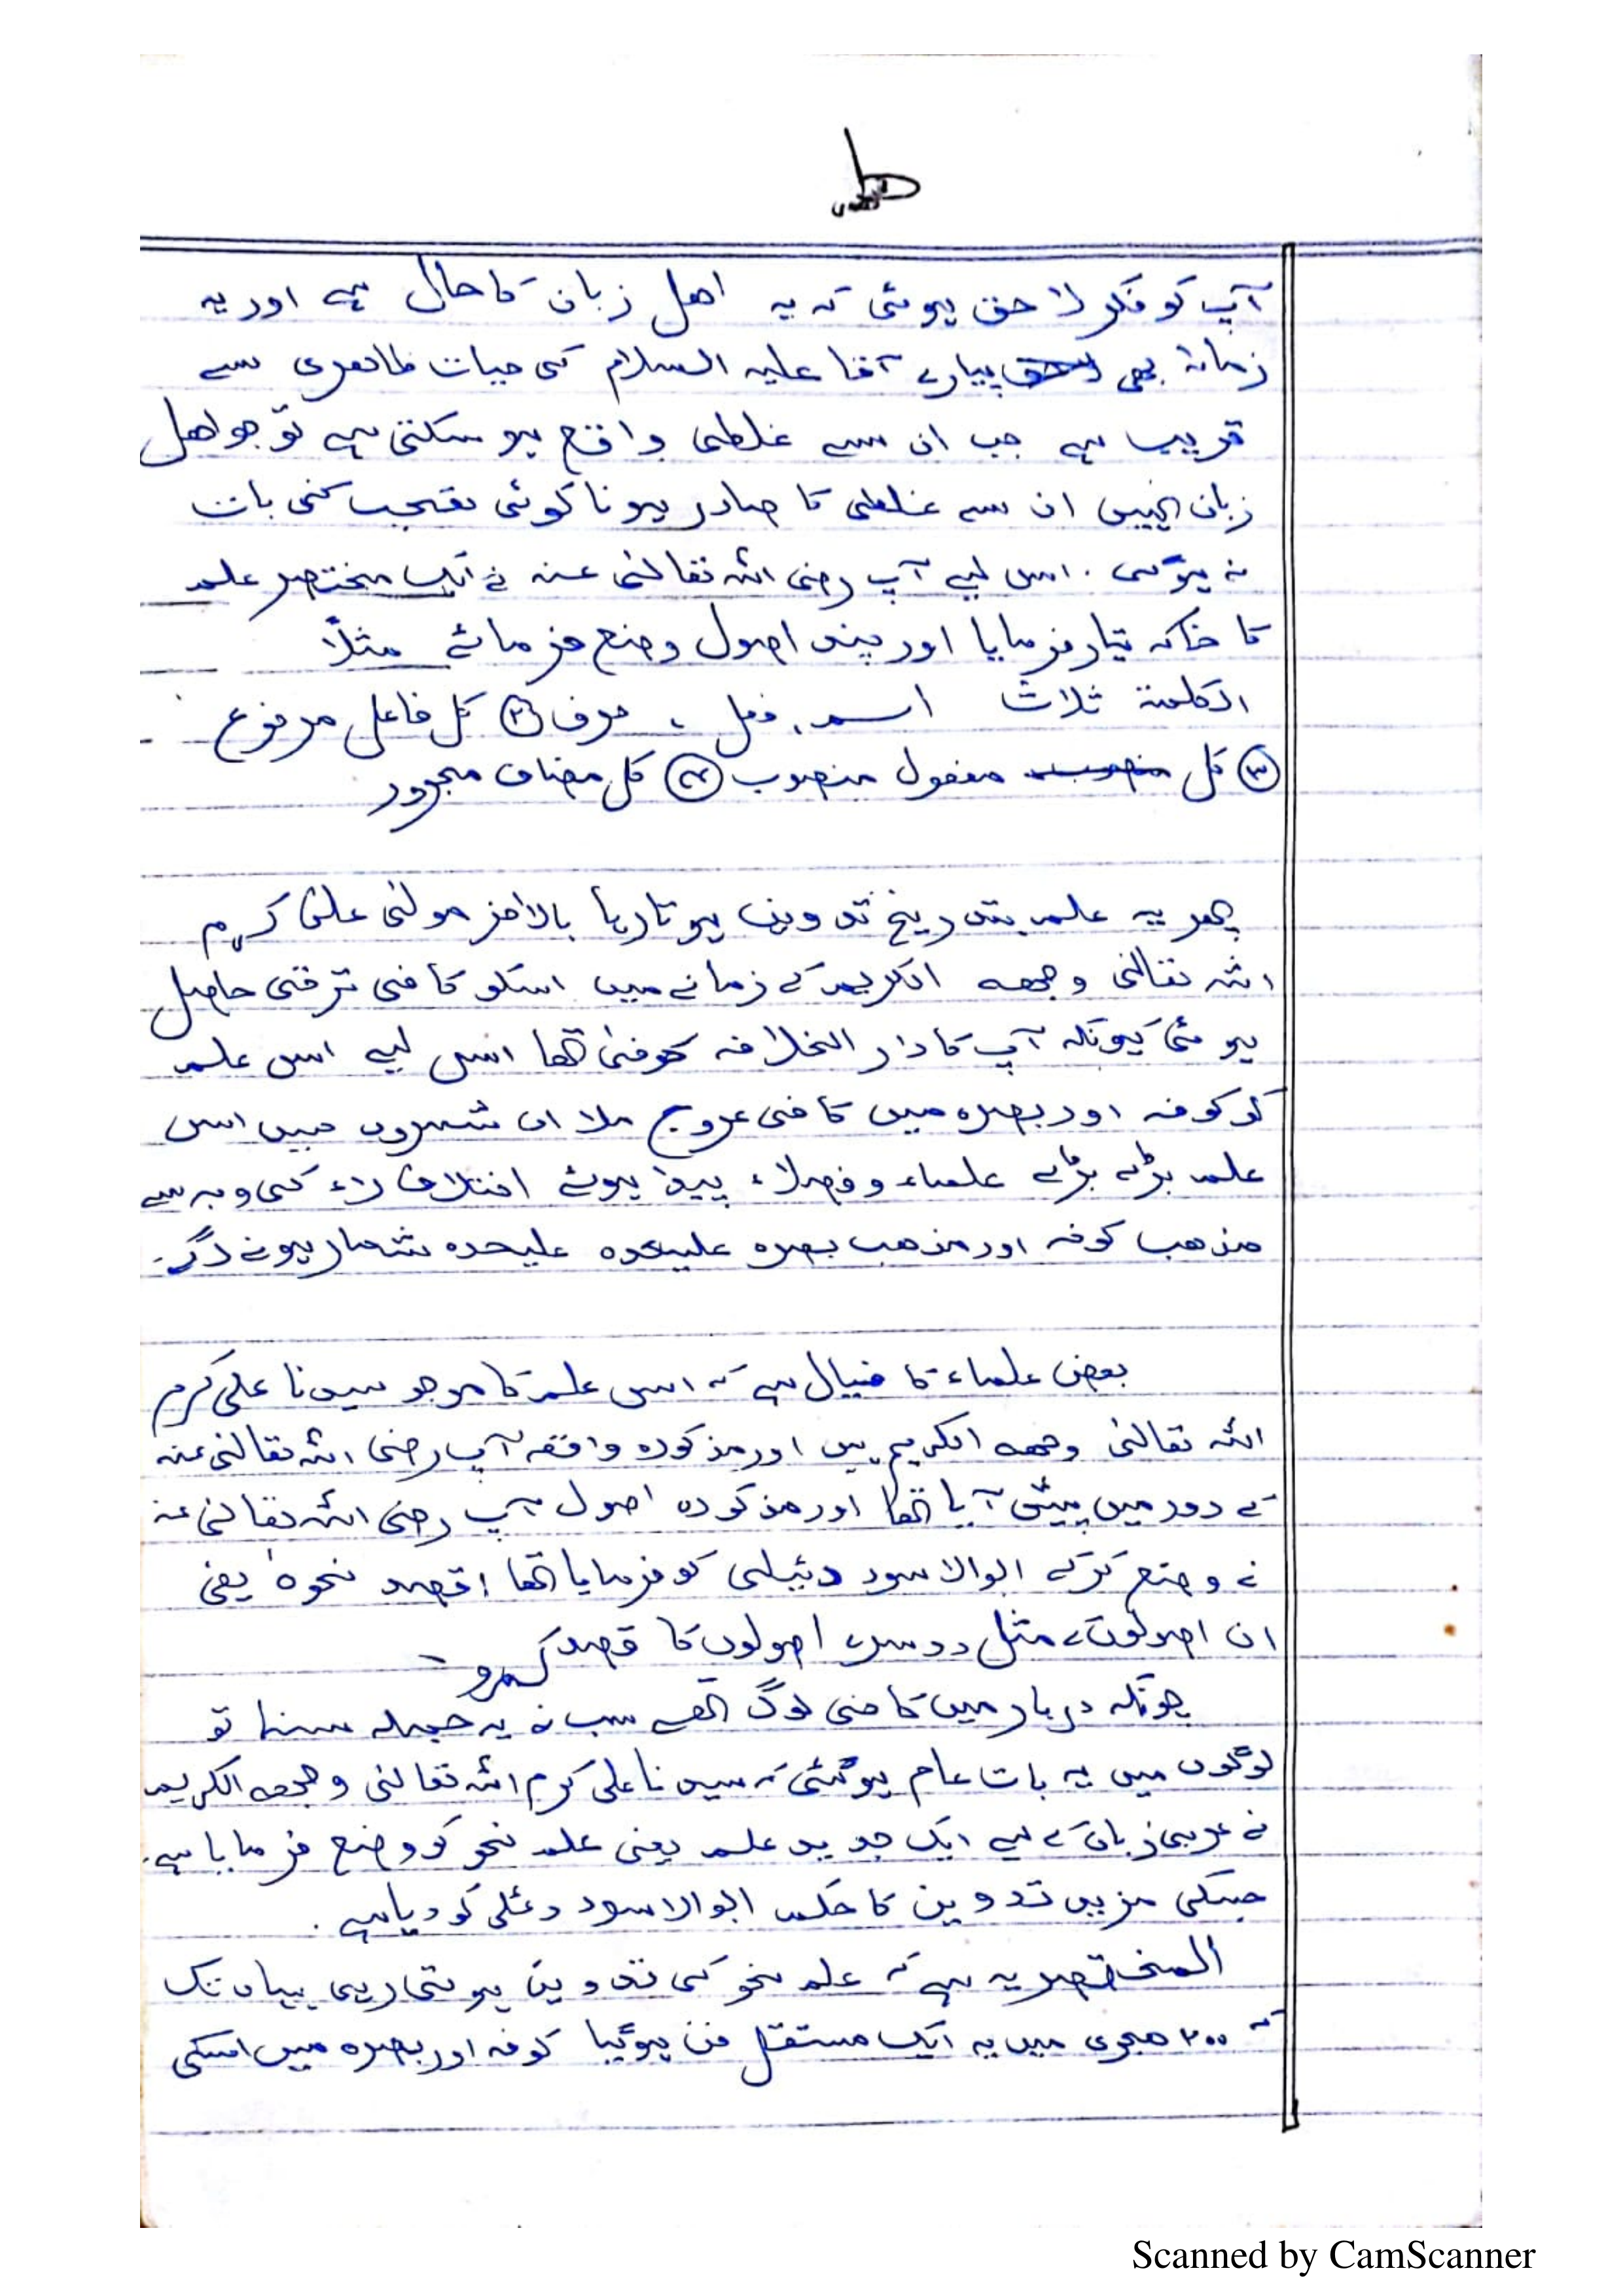 آپ کو فکر لاحق ہوئی کہ یہ اھل زبان کا حال ہے اور یہ
زمانہ بھی پیارے آقا علیہ السلام کی حیات ظاھری سے
قریب ہے جب ان سے غلطی واقع ہو سکتی ہے تو جو اھل
زبان نہیں ان سے غلطی کا صادر ہونا کوئی تعجب کی بات
نہ ہوگی ۔ اس لیے آپ رضی اللہ تعالیٰ عنہ نے ایک مختصر علم
کا خاکہ تیار فرمایا اور چند اصول وضع فرمائے مثلاً
الکلمۃ ثلاث اسم، فعل، حرف ② کل فاعل مرفوع
③ کل مفعول منصوب ④ کل مضاف مجرور
پھر یہ علم بتدریج تدوین ہوتا رہا بالاخر مولیٰ علی کرم
اللہ تعالیٰ وجھہ الکریم کے زمانے میں اسکو کافی ترقی حاصل
ہوئی کیونکہ آپ کا دار الخلافہ کوفہ تھا اسی لیے اس علم
کو کوفہ اور بصرہ میں کافی عروج ملا ان شہروں میں اس
علم بڑے بڑے علماء و فضلاء پیدا ہوئے اختلاف راء کی وجہ سے
مذھب کوفہ اور مذھب بصرہ علیحدہ علیحدہ شمار ہونے لگے۔
بعض علماء کا خیال ہے کہ اس علم کا موجد سیدنا علی کرم
اللہ تعالیٰ وجھہ الکریم ہیں اور مذکورہ واقعہ آپ رضی اللہ تعالیٰ عنہ
کے دور میں پیش آیا تھا اور مذکورہ اصول آپ رضی اللہ تعالیٰ عنہ
نے وضع کرکے ابوالاسود دئیلی کو فرمایا تھا اقصد نحوہ یعنی
ان اصولوں کے مثل دوسرے اصولوں کا قصد کرو
چونکہ دربار میں کافی لوگ تھے سب نے یہ جملہ سنا تو
لوگوں میں یہ بات عام ہوگئی کہ سیدنا علی کرم اللہ تعالیٰ وجھہ الکریم
نے عربی زبان کے لیے ایک جدید علم یعنی علم نحو کو وضع فرمایا ہے۔
جسکی مزید تدوین کا حکم ابوالاسود دئلی کو دیا ہے ۔
المختصر یہ ہے کہ علم نحو کی تدوین ہوتی رہی یہاں تک
کہ ۲۰۰ ھجری میں یہ ایک مستقل فن ہوگیا کوفہ اور بصرہ میں اسکی
Scanned by CamScanner